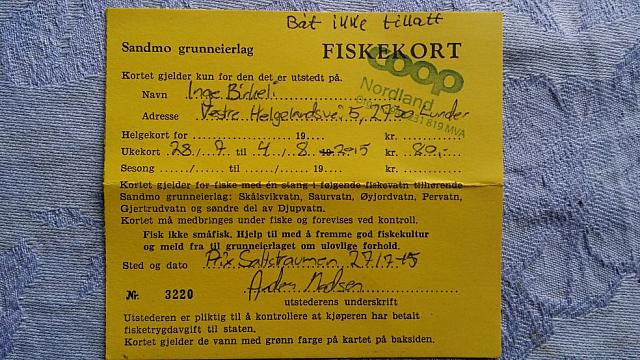 Båt ikke tillatt
Sandmo grunneierlag FISKEKORT
coop
Nordland
Kortet gjelder kun for den det er utstedt på.
Navn Inge
Adresse Vestre 5, 2730 Lunner
819 MVA
Helgekort for ........ 19.... kr. ........
Ukekort 28/7 til 4/8 19 2015 kr. 80,-
Sesong ....../...... til ....../...... 19.... kr. ........
Kortet gjelder for fiske med én stang i følgende fiskevatn tilhørende
Sandmo grunneierlag: Skålsvikvatn, Saurvatn, Øyjordvatn, Pervatn,
Gjertrudvatn og søndre del av Djupvatn.
Kortet må medbringes under fiske og forevises ved kontroll.
Fisk ikke småfisk. Hjelp til med å fremme god fiskekultur
og meld fra til grunneierlaget om ulovlige forhold.
Sted og dato Prix Saltstraumen 27/7-15
utstederens underskrift
Nr. 3220
Utstederen er pliktig til å kontrollere at kjøperen har betalt
fisketrygdavgift til staten.
Kortet gjelder de vann med grønn farge på kartet på baksiden.